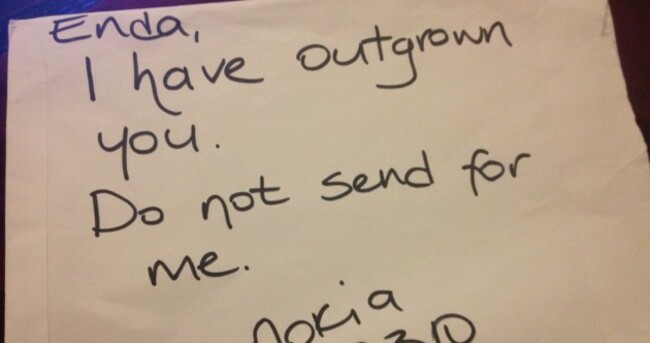 Enda,
I have outgrown
you.
Do not send for
me.
nokia